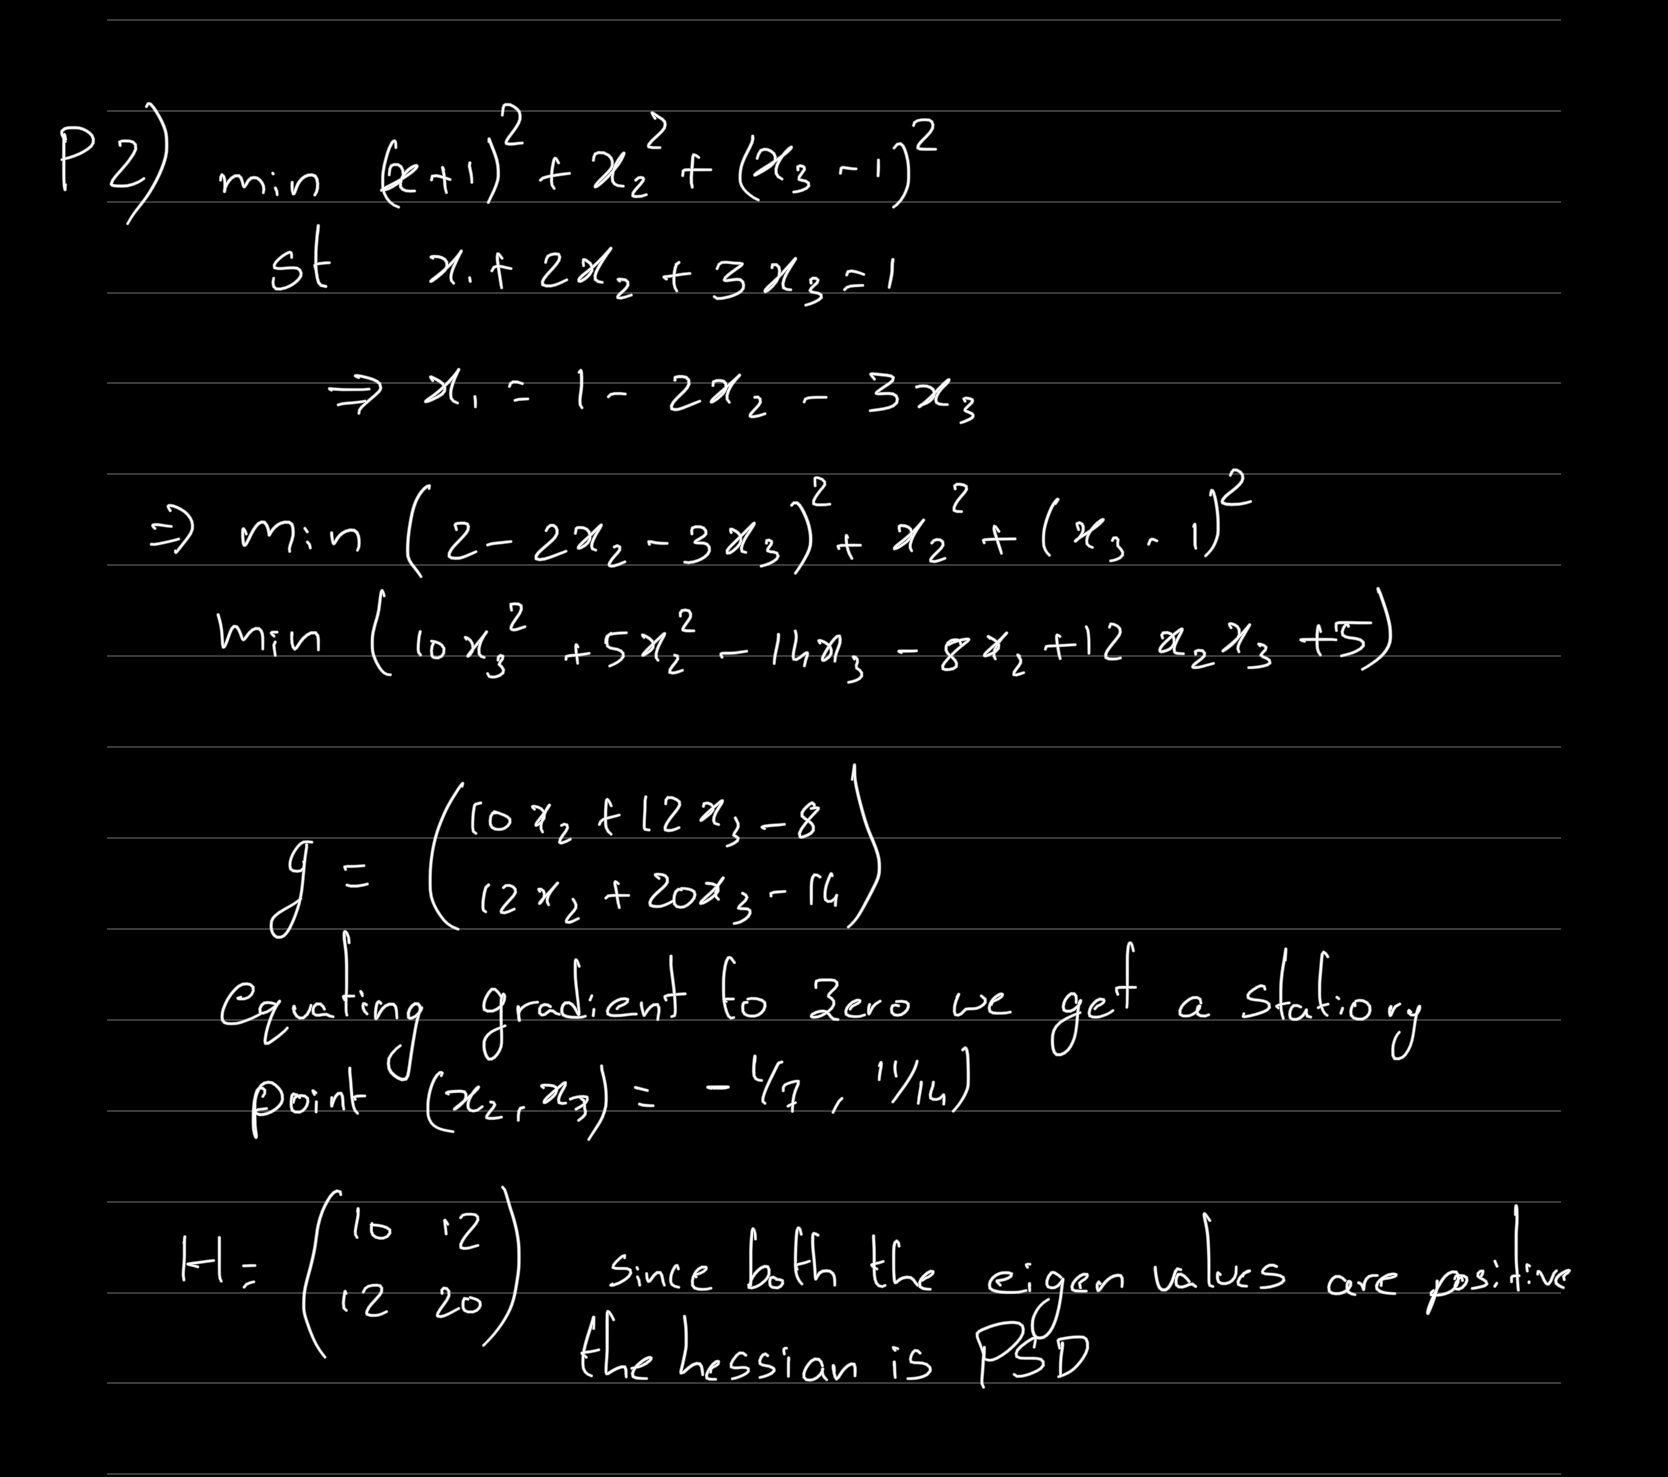 P2) min (x+1)² + x₂² + (x₃ - 1)²
st x₁ + 2x₂ + 3x₃ = 1
⇒ x₁ = 1 - 2x₂ - 3x₃
⇒ min (2 - 2x₂ - 3x₃)² + x₂² + (x₃ - 1)²
min (10x₃² + 5x₂² - 14x₃ - 8x₂ + 12 x₂x₃ + 5)
g = ( 10x₂ + 12x₃ - 8
12x₂ + 20x₃ - 14 )
equating gradient to zero we get a statiory
point (x₂, x₃) = - 1/7, 11/14)
H = ( 10 12
12 20 ) since both the eigen values are positive
the hessian is PSD